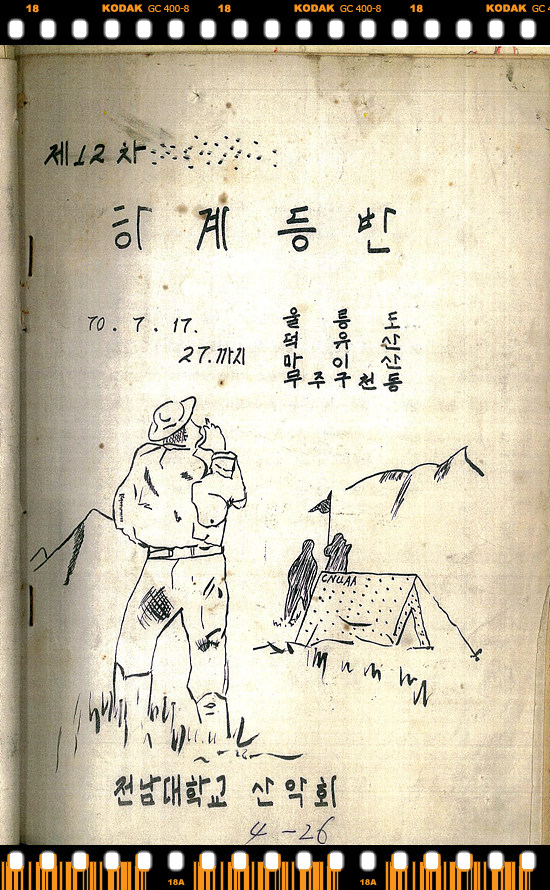 18 KODAK GC 400-8 18 KODAK GC 400-8 18 KODAK GC 4
제12차
하계등반
70. 7. 17.
27.까지
울릉도
덕유산
마이산
무주구천동
CNUAA
전남대학교 산악회
4-26
18A 18A